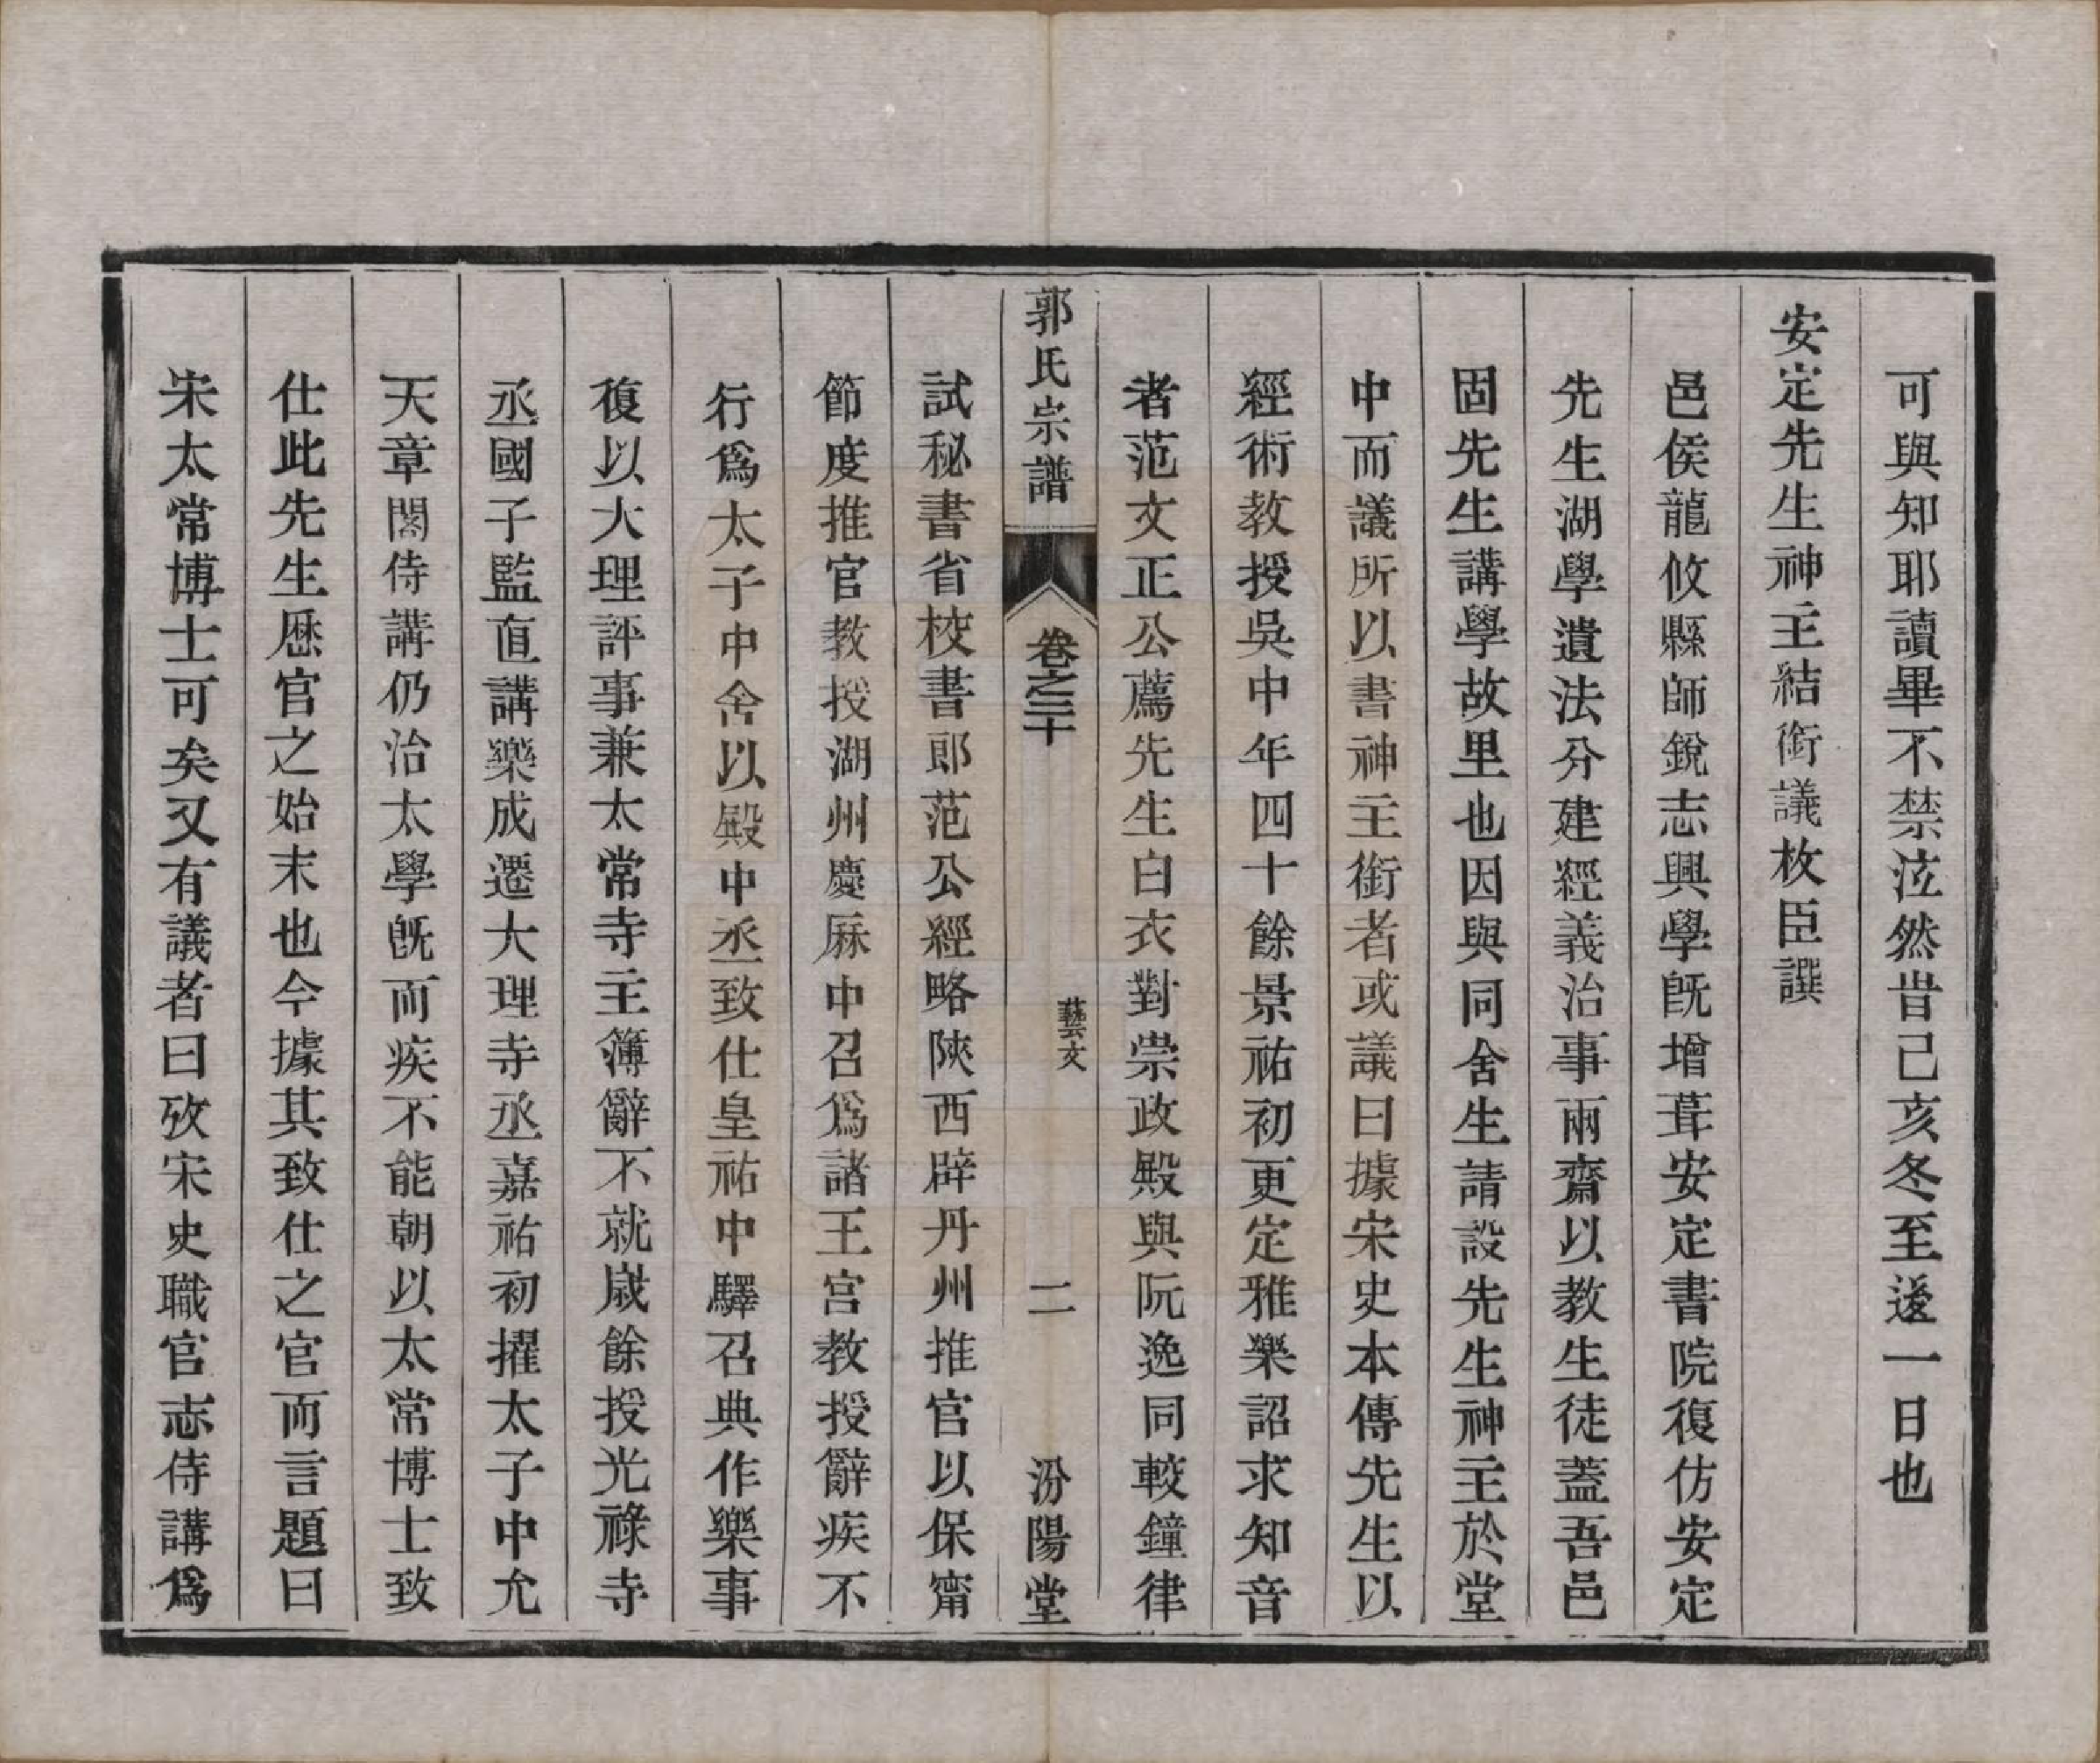 可與知耶讀畢不禁泣然昔己亥冬至後一日也
安定先生神主結銜議枚臣譔
邑侯龍攸縣師銳志興學既增葺安定書院復仿安定
先生湖學遺法分建經義治事兩齋以教生徒蓋吾邑
固先生講學故里也因與同舍生請設先生神主於堂
中而議所以書神主銜者或議曰據宋史本傳先生以
經術教授吳中年四十餘景祐初更定雅樂詔求知音
者范文正公薦先生白衣對崇政殿與阮逸同較鐘律
郭氏宗譜
卷之三十
藝文
二
汾陽堂
試秘書省校書郎范公經略陝西辟丹州推官以保甯
節度推官教授湖州慶厤中召爲諸王宮教授辭疾不
行爲太子中舍以殿中丞致仕皇祐中驛召典作樂事
復以大理評事兼太常寺主簿辭不就歲餘授光祿寺
丞國子監直講樂成遷大理寺丞嘉祐初擢太子中允
天章閣侍講仍治太學既而疾不能朝以太常博士致
仕此先生歷官之始末也今據其致仕之官而言題曰
宋太常博士可矣又有議者曰攷宋史職官志侍講爲